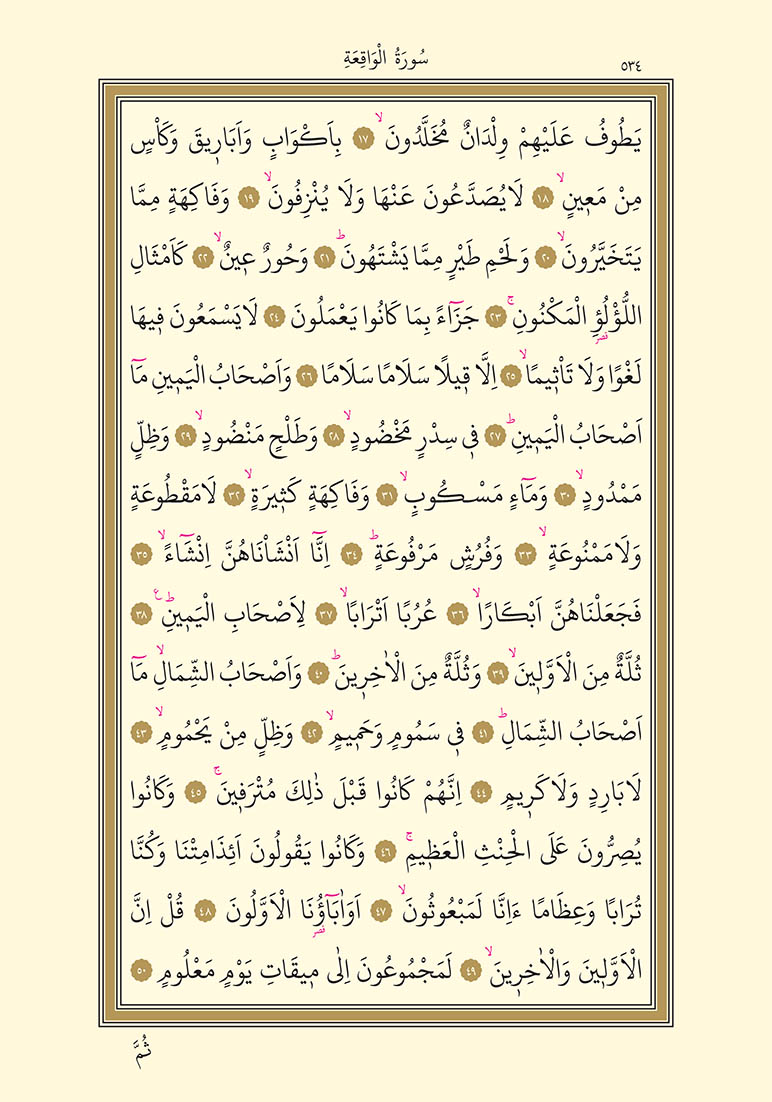 ٥٣٤
سُورَةُ الْوَاقِعَةِ
يَطُوفُ عَلَيْهِمْ وِلْدَانٌ مُخَلَّدُونَۙ ﴿١٧﴾ بِاَكْوَابٍ وَاَبَار۪يقَ وَكَأْسٍ
مِنْ مَع۪ينٍۙ ﴿١٨﴾ لَا يُصَدَّعُونَ عَنْهَا وَلَا يُنْزِفُونَۙ ﴿١٩﴾ وَفَاكِهَةٍ مِمَّا
يَتَخَيَّرُونَۙ ﴿٢٠﴾ وَلَحْمِ طَيْرٍ مِمَّا يَشْتَهُونَۜ ﴿٢١﴾ وَحُورٌ ع۪ينٌۙ ﴿٢٢﴾ كَاَمْثَالِ
اللُّؤْلُؤِ۬ الْمَكْنُونِۚ ﴿٢٣﴾ جَزَٓاءً بِمَا كَانُوا يَعْمَلُونَ ﴿٢٤﴾ لَا يَسْمَعُونَ ف۪يهَا
لَغْوًا وَلَا تَأْث۪يمًاۙ ﴿٢٥﴾ اِلَّا ق۪يلًا سَلَامًا سَلَامًا ﴿٢٦﴾ وَاَصْحَابُ الْيَم۪ينِ مَٓا
اَصْحَابُ الْيَم۪ينِۜ ﴿٢٧﴾ ف۪ي سِدْرٍ مَخْضُودٍۙ ﴿٢٨﴾ وَطَلْحٍ مَنْضُودٍۙ ﴿٢٩﴾ وَظِلٍّ
مَمْدُودٍۙ ﴿٣٠﴾ وَمَٓاءٍ مَسْكُوبٍۙ ﴿٣١﴾ وَفَاكِهَةٍ كَث۪يرَةٍۙ ﴿٣٢﴾ لَا مَقْطُوعَةٍ
وَلَا مَمْنُوعَةٍۙ ﴿٣٣﴾ وَفُرُشٍ مَرْفُوعَةٍۜ ﴿٣٤﴾ اِنَّٓا اَنْشَأْنَاهُنَّ اِنْشَٓاءًۙ ﴿٣٥﴾
فَجَعَلْنَاهُنَّ اَبْكَارًاۙ ﴿٣٦﴾ عُرُبًا اَتْرَابًاۙ ﴿٣٧﴾ لِاَصْحَابِ الْيَم۪ينِۜ ع ﴿٣٨﴾
ثُلَّةٌ مِنَ الْاَوَّل۪ينَۙ ﴿٣٩﴾ وَثُلَّةٌ مِنَ الْاٰخِر۪ينَۜ ﴿٤٠﴾ وَاَصْحَابُ الشِّمَالِۙ مَٓا
اَصْحَابُ الشِّمَالِۜ ﴿٤١﴾ ف۪ي سَمُومٍ وَحَم۪يمٍۙ ﴿٤٢﴾ وَظِلٍّ مِنْ يَحْمُومٍۙ ﴿٤٣﴾
لَا بَارِدٍ وَلَا كَر۪يمٍ ﴿٤٤﴾ اِنَّهُمْ كَانُوا قَبْلَ ذٰلِكَ مُتْرَف۪ينَۚ ﴿٤٥﴾ وَكَانُوا
يُصِرُّونَ عَلَى الْحِنْثِ الْعَظ۪يمِۚ ﴿٤٦﴾ وَكَانُوا يَقُولُونَ اَئِذَا مِتْنَا وَكُنَّا
تُرَابًا وَعِظَامًا ءَاِنَّا لَمَبْعُوثُونَۙ ﴿٤٧﴾ اَوَاٰبَٓاؤُ۬نَا الْاَوَّلُونَ ﴿٤٨﴾ قُلْ اِنَّ
الْاَوَّل۪ينَ وَالْاٰخِر۪ينَۙ ﴿٤٩﴾ لَمَجْمُوعُونَ اِلٰى م۪يقَاتِ يَوْمٍ مَعْلُومٍ ﴿٥٠﴾
ثُمَّ